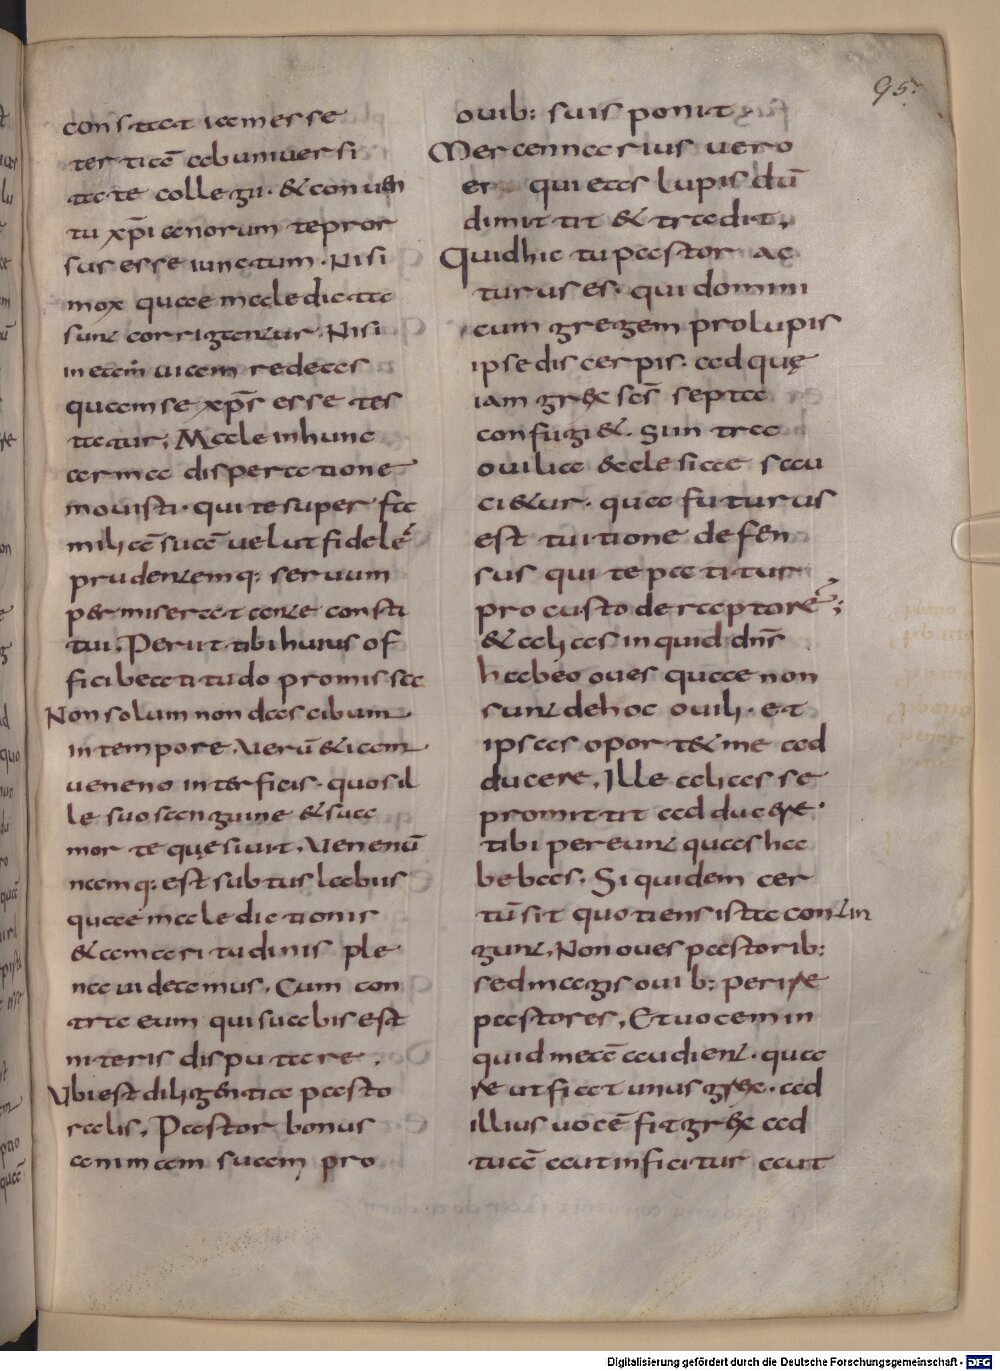 95.
constat iam esse
ter tiā ab universi
tate collegii · & conven
tu xp̄i anorum te pror
sus esse iunctum · Nisi
mox quae maledicta
sunt corrigantur · Nisi
in etiam vicem redeas
quam se xp̄s esse tes
tatur; Male in hunc
arma disperatione
movisti · qui te super fa
miliā suā velut fidelē
prudentemq: servum
per miserat ante consti
tui. Perit tibi huius of
fici beatitudo promissa
Non solum non das cibum
in tempore, Verū & iam
veneno interficis · quos il
le suo sanguine & sua
mor te quęsivit, Venenū
namq: est sub tus labiis
quae maledictionis
& amaritudinis ple
na videamus, Cum con
tra eum qui suabis est
niteris disputare ,
Ubi est diligentia pasto
ralis, Pastor bonus
animam suam pro
ovib: suis ponit
Mercennarius vero
er qui eas lupis dū
dimittit & tradit,
Quid hic tu pastor ac
turus es · qui domini
cum gregem pro lupis
ipse discerpis · ad quę
iam grex scs̄ septa
confugi&. Sun tra
ovilia &clesiae sau
ci&ur · qua futurus
est tuitione defen
sus qui te patitur
pro custode raptorē;
& alias inquid dns̄
habeo oves quae non
sunt de hoc ovili · et
ipsas oport& me ad
ducere, Ille alias se
promittit adducere ·
tibi pereunt quas ha
bebas. Si quidem cer
tū sit quotiens ista contin
gunt, Non oves pastorib:
sed magis ovib: perire
pastores, Et vocem in
quid meā audient · qua
re ut fiat unus grex · ad
illius vocē fit grex ad
tuā aut inficitur aut
Digitalisierung gefördert durch die Deutsche Forschungsgemeinschaft - DFG